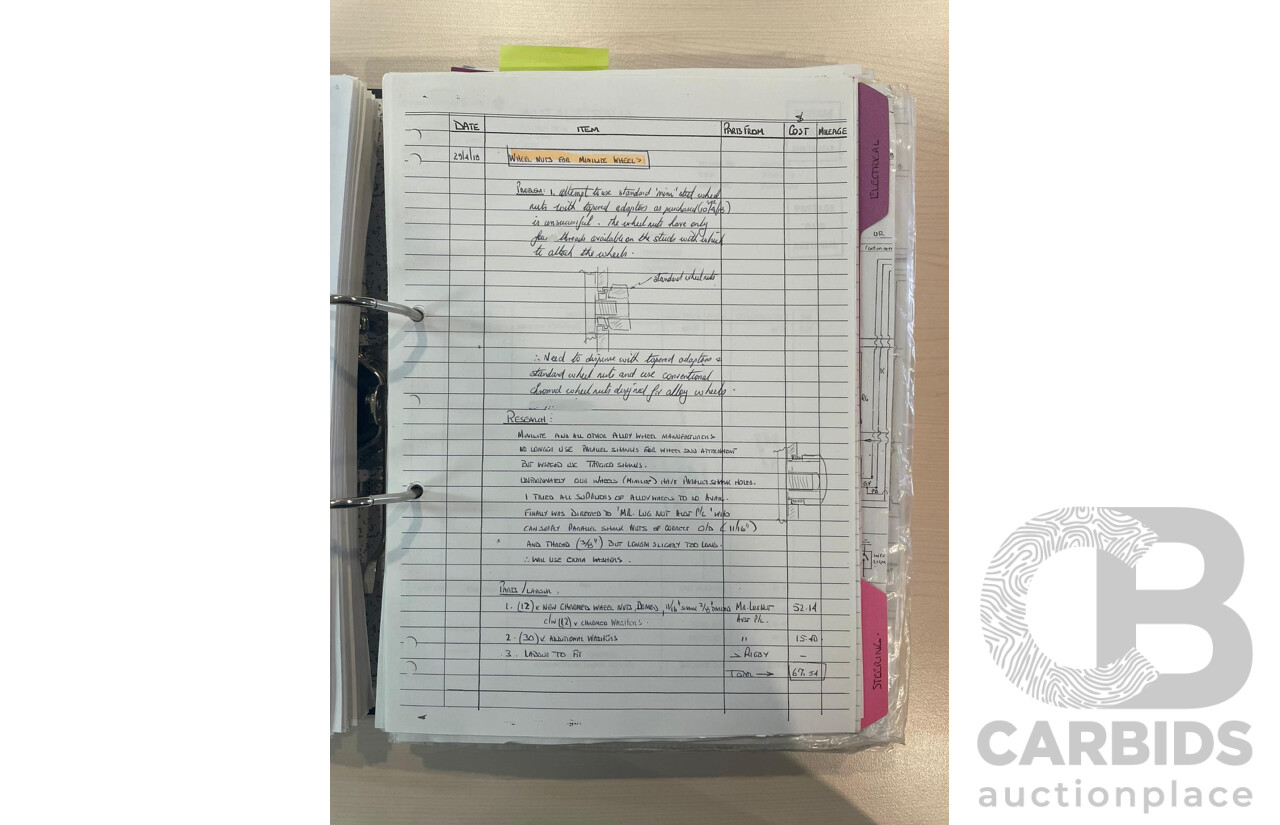 $
DATE ITEM PARTS FROM COST MILEAGE
WHEEL NUTS FOR MINILITE WHEELS
PROBLEM: 1. attempt to use standard 'mini' steel wheel
nuts with tapered adaptors as purchased
is unsuccessful. The wheel nuts have only
few threads available on the studs with which
to attach the wheels.
standard wheel nuts
∴ Need to dispense with tapered adaptors &
standard wheel nuts and use conventional
chromed wheel nuts designed for alloy wheels.
RESEARCH:
MINILITE AND ALL OTHER ALLOY WHEEL MANUFACTURERS
NO LONGER USE PARALLEL SHANKS FOR WHEEL ATTACHMENT
BUT INSTEAD USE TAPERED SHANKS.
UNFORTUNATELY OUR WHEELS (MINILITE) HAVE PARALLEL SHANK HOLES.
I TRIED ALL SUPPLIERS OF ALLOY WHEELS TO NO AVAIL.
FINALLY WAS DIRECTED TO 'MR. LUG NUT AUST P/L' WHO
CAN SUPPLY PARALLEL SHANK NUTS OF CORRECT O/D (11/16")
AND THREAD (3/8") BUT LENGTH SLIGHTLY TOO LONG.
∴ WILL USE EXTRA WASHERS.
PARTS/LABOUR.
1. (12) x NEW CHROMED WHEEL NUTS, DOMED, 11/16" SHANK 3/8" THREAD MR. LUG NUT 52.14
C/W (12) x CHROMED WASHERS. AUST P/L.
2. (30) x ADDITIONAL WASHERS " 15.40
3. LABOUR TO FIT RIGBY –
TOTAL → 67.54
ELECTRICAL
STEERING.
CB
CARBIDS
auctionplace